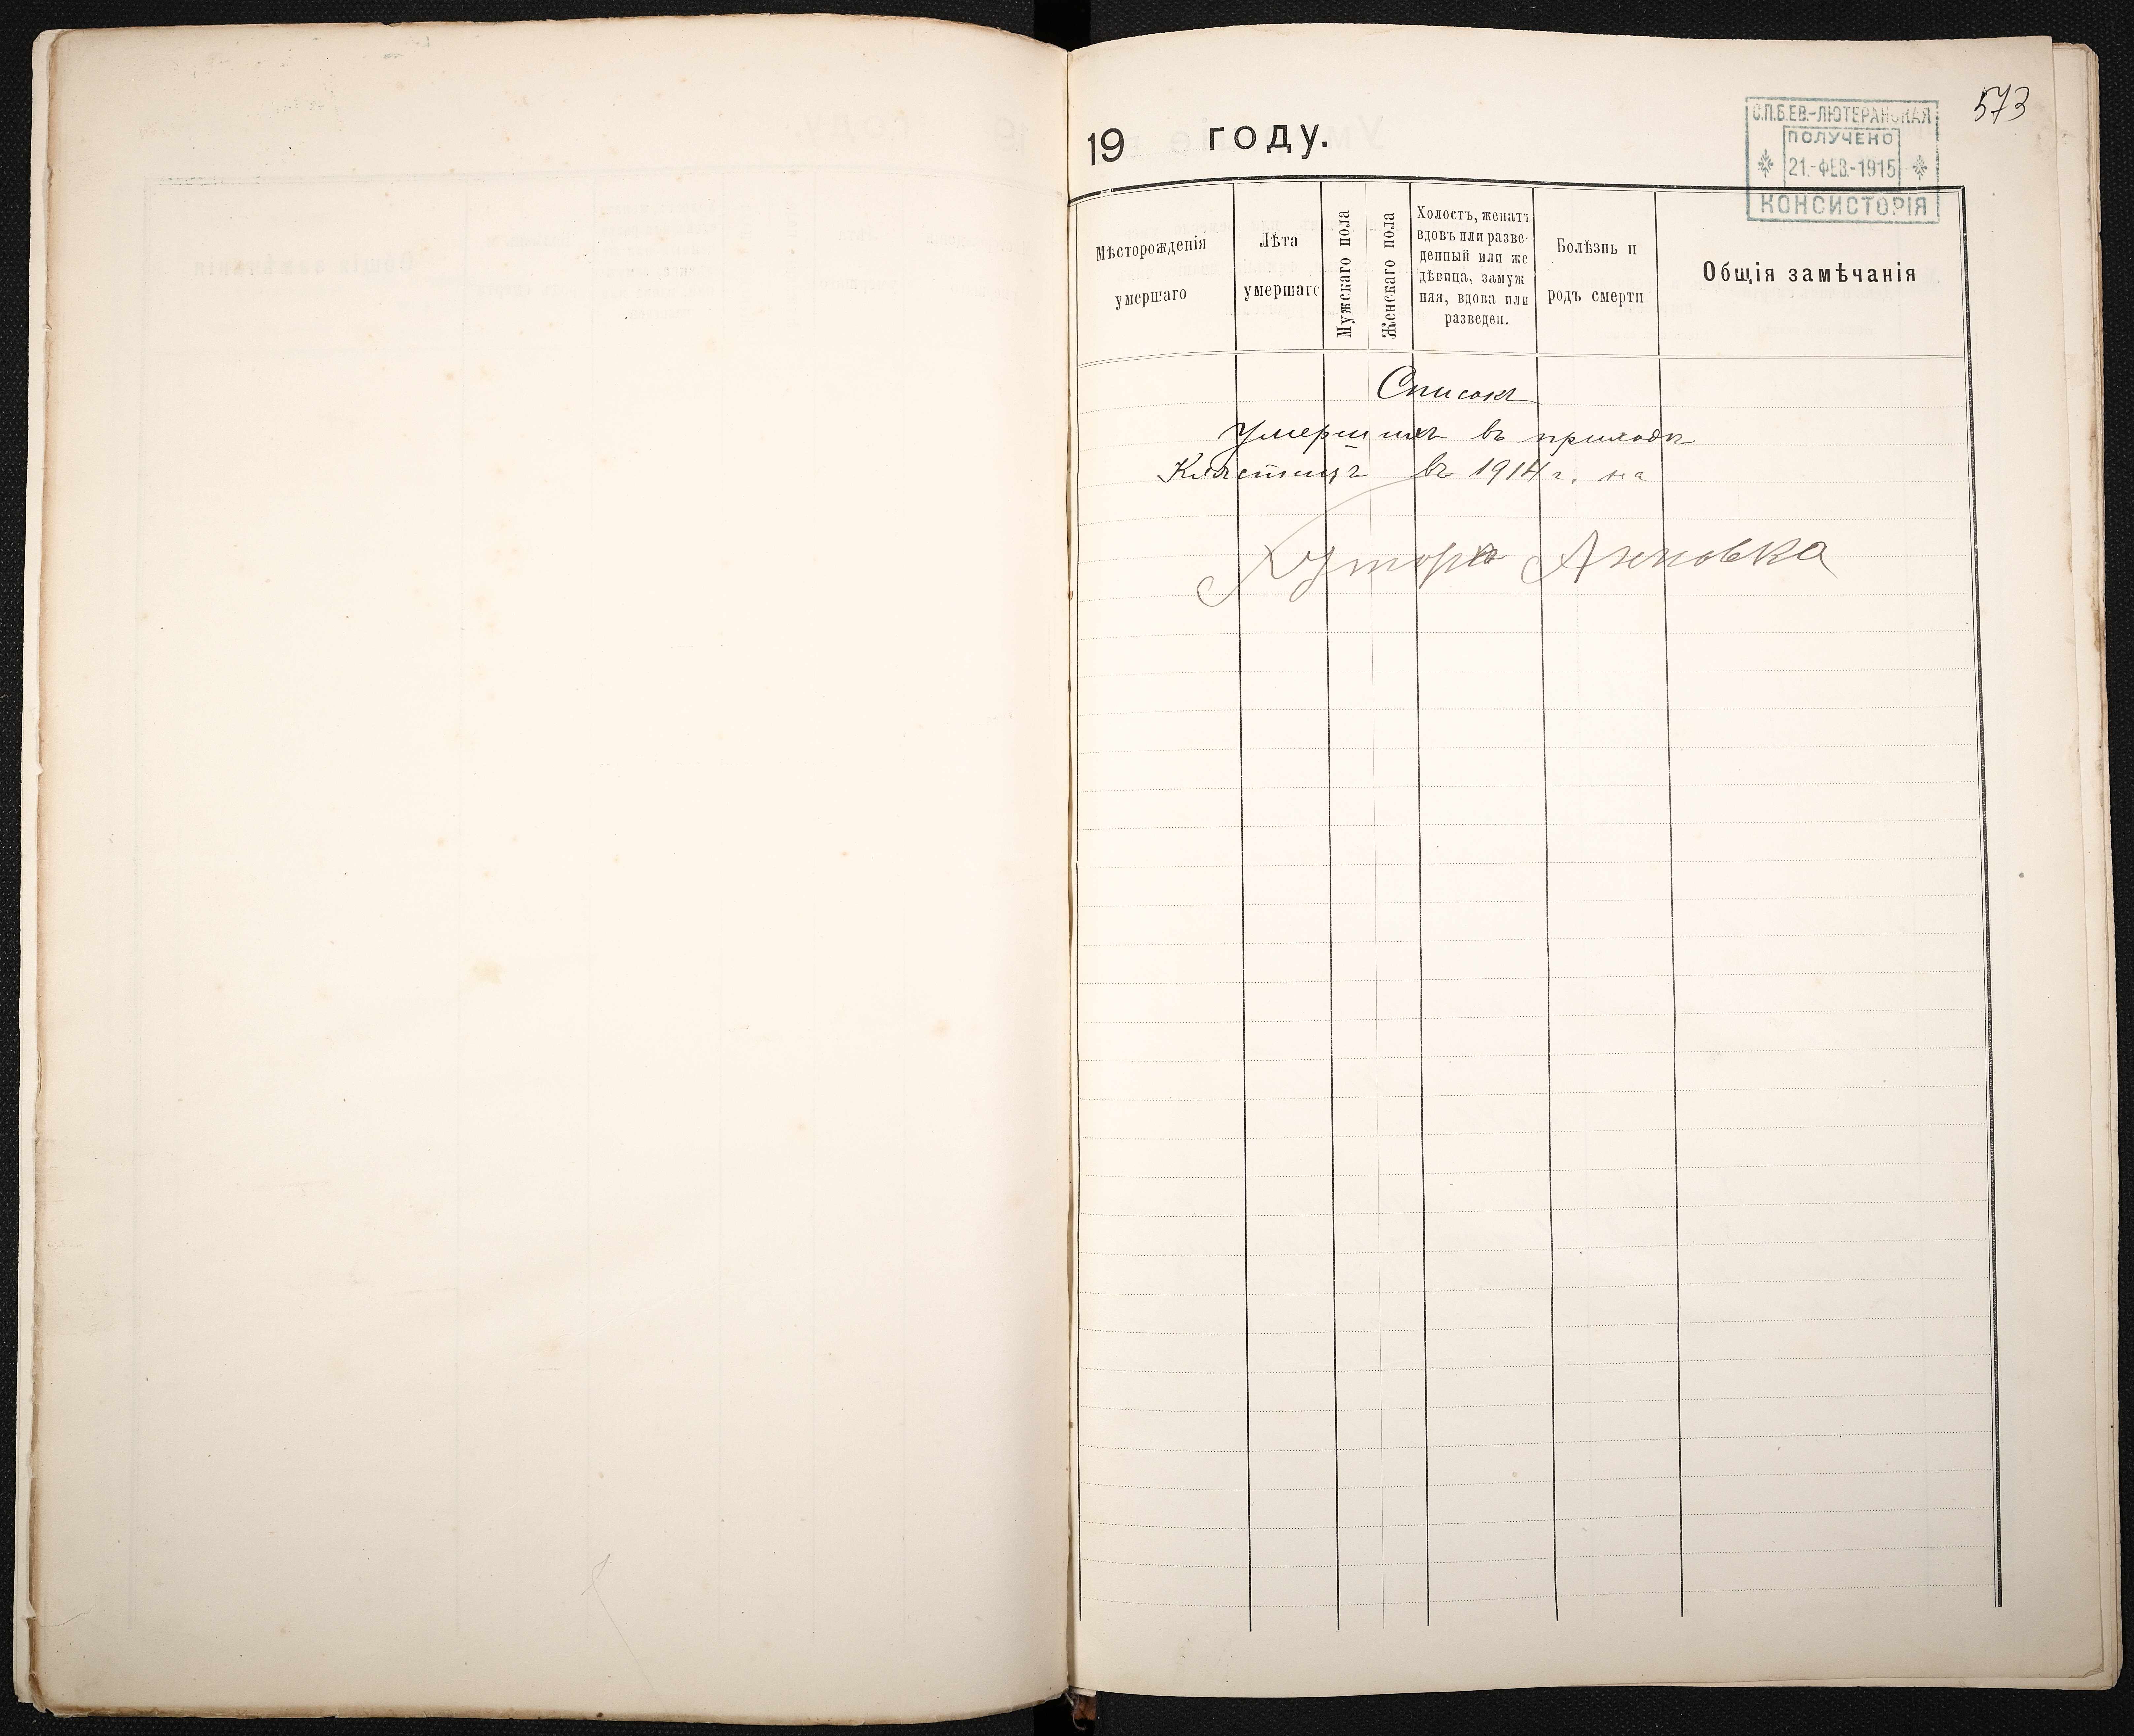 573
С.П.Б.ЕВ.-ЛЮТЕРАНСКАЯ
ПОЛУЧЕНО
21.-ФЕВ.-1915
КОНСИСТОРІЯ
19 году.
Мѣсторожденія
умершаго
Лѣта
умершаго
Мужскаго пола
Женскаго пола
Холостъ, женатъ
вдовъ или разве-
денный или же
дѣвица, замуж
няя, вдова или
разведен.
Болѣзнь и
родъ смерти
Общія замѣчанія
Списокъ
Умершихъ въ приходѣ
Клястицъ въ 1914 г. на
Хуторѣ Анновка